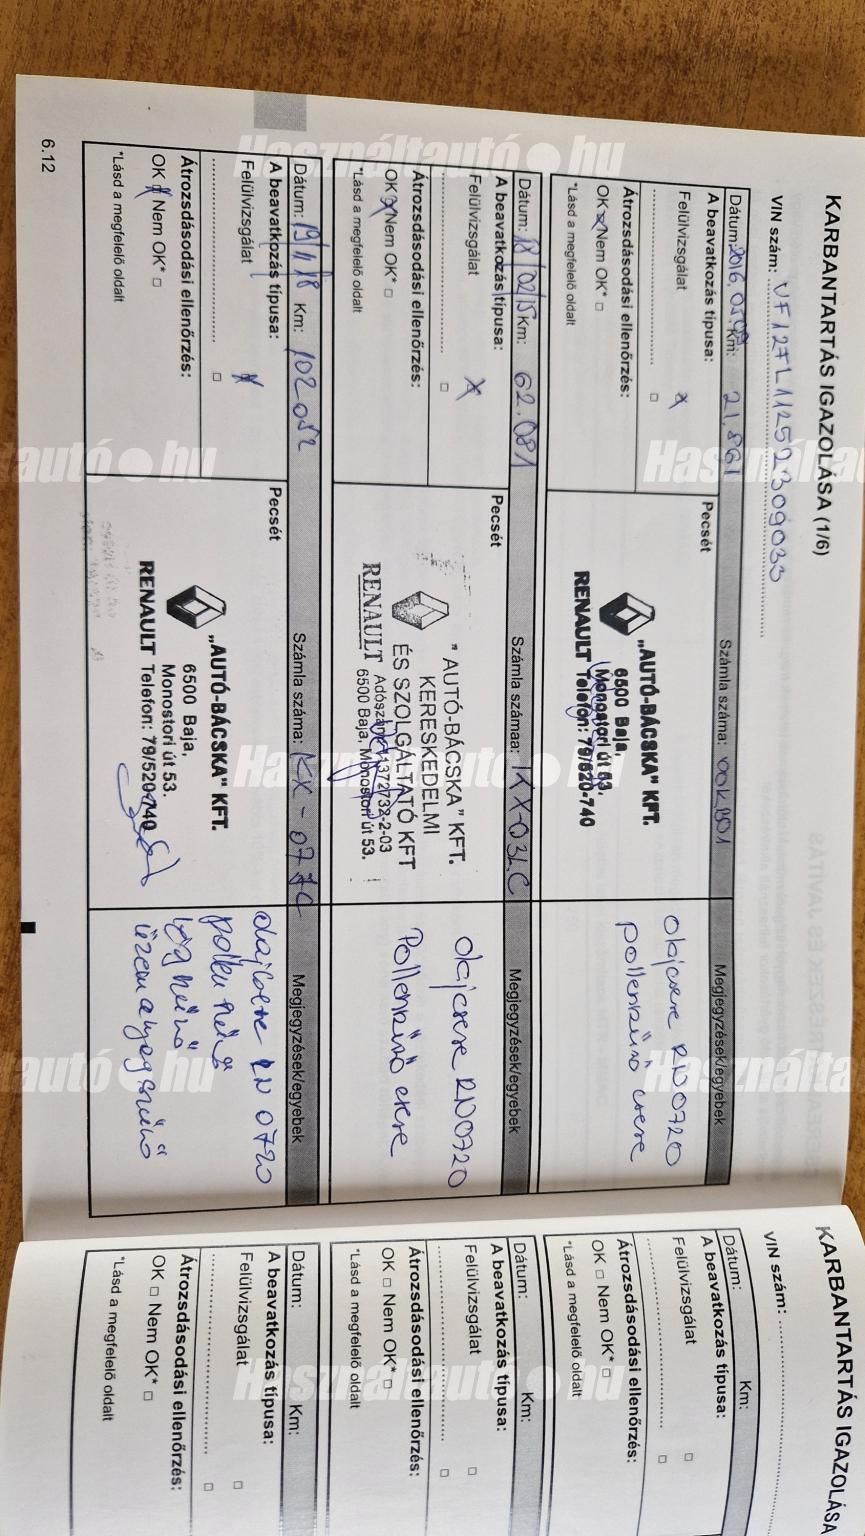 KARBANTARTÁS IGAZOLÁSA (1/6)
VIN szám: VF127L11252309033
Dátum: 2016.05.09 Km: 21.861
Számla száma: 00KB01
Megjegyzések/egyebek
A beavatkozás típusa:
Felülvizsgálat x
Átrozsdásodási ellenőrzés:
OK x Nem OK* □
*Lásd a megfelelő oldalt
Pecsét
„AUTÓ-BÁCSKA" KFT.
6500 Baja,
Monostori út 53.
RENAULT Telefon: 79/520-740
olajcsere RN0720
pollenszűrő csere
Dátum: 18/02/15 Km: 62.081
Számla számaa: KX-03LC
Megjegyzések/egyebek
A beavatkozás típusa:
Felülvizsgálat x
Átrozsdásodási ellenőrzés:
OK x Nem OK* □
*Lásd a megfelelő oldalt
Pecsét
" AUTÓ-BÁCSKA" KFT.
KERESKEDELMI
ÉS SZOLGÁLTATÓ KFT
Adószám: 11372732-2-03
RENAULT 6500 Baja, Monostori út 53.
olajcsere RN0720
Pollenszűrő csere
Dátum: 19/1/18 Km: 102052
Számla száma: KX-077C
Megjegyzések/egyebek
A beavatkozás típusa:
Felülvizsgálat x
Átrozsdásodási ellenőrzés:
OK x Nem OK* □
*Lásd a megfelelő oldalt
Pecsét
„AUTÓ-BÁCSKA" KFT.
6500 Baja,
Monostori út 53.
RENAULT Telefon: 79/520-740
olajcsere RN0720
pollen szűrő
légszűrő
üzemanyagszűrő
6.12
KARBANTARTÁS IGAZOLÁSA
VIN szám:
Dátum: Km:
A beavatkozás típusa:
Felülvizsgálat □
Átrozsdásodási ellenőrzés:
OK □ Nem OK* □
*Lásd a megfelelő oldalt
Dátum: Km:
A beavatkozás típusa:
Felülvizsgálat □
Átrozsdásodási ellenőrzés:
OK □ Nem OK* □
*Lásd a megfelelő oldalt
Dátum: Km:
A beavatkozás típusa:
Felülvizsgálat □
Átrozsdásodási ellenőrzés:
OK □ Nem OK* □
*Lásd a megfelelő oldalt
Használtautó.hu